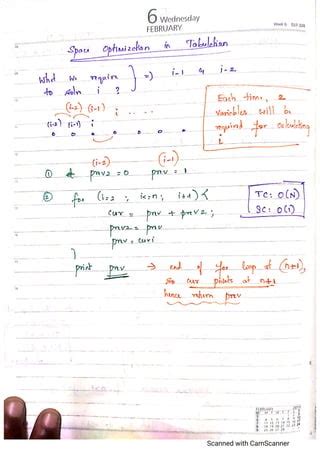 6 Wednesday
FEBRUARY
Week 6
Space Optimization in Tabulation
What we require
to solve i ? } => i-1 & i-2
(i-2) (i-1) i . . . .
(i-2) (i-1) i
Each time, 2
variables will be
required for calculating
i
(i-2) (i-1)
① prev2 = 0 prev = 1
② for (i=2 ; i<=n ; i++) {
cur = prev + prev2 ;
prev2 = prev
prev = curi
}
TC: O(N)
SC: O(1)
print prev → end of for loop at (n+1),
so cur points at n+1
hence return prev
FEBRUARY
Scanned with CamScanner